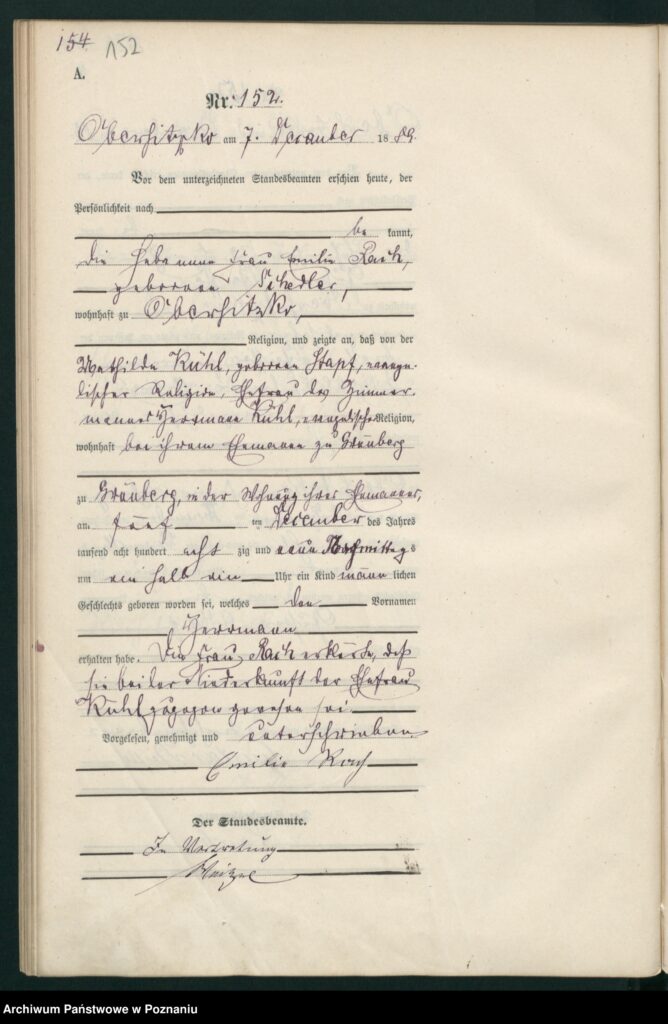 154 152
A.
Nr. 152.
Obersitzko am 7. December 1889.
Vor dem unterzeichneten Standesbeamten erschien heute, der
Persönlichkeit nach
be kannt,
die Hebamme Frau Emilie Rach,
geborene Schedler,
wohnhaft zu Obersitzko,
Religion, und zeigte an, daß von der
Mathilde Kühl, geborene Stapf, evange-
lischer Religion, Ehefrau des Zimmer-
mannes Herrmann Kühl, evangelischer Religion,
wohnhaft bei ihrem Ehemanne zu Grünberg
zu Grünberg, in der Wohnung ihres Ehemannes,
am fünf ten December des Jahres
tausend acht hundert acht zig und neun Nachmittags
um ein halb ein Uhr ein Kind männ lichen
Geschlechts geboren worden sei, welches den Vornamen
Herrmann
erhalten habe. Die Frau Rach erklärte, daß
sie bei der Niederkunft der Ehefrau
Kühl zugegen gewesen sei.
Vorgelesen, genehmigt und unterschrieben
Emilie Rach
Der Standesbeamte.
In Vertretung
Archiwum Państwowe w Poznaniu